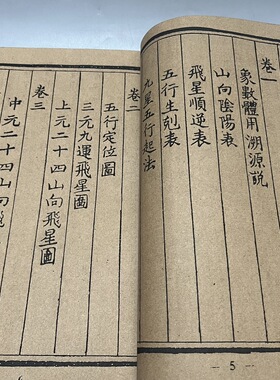 卷一
象數體用溯源說
山向陰陽表
飛星順逆表
五行生剋表
九星五行起法
- 5 -
卷二
五行定位圖
三元九運飛星圖
上元二十四山向飛星圖
卷三
中元二十四山向飛星